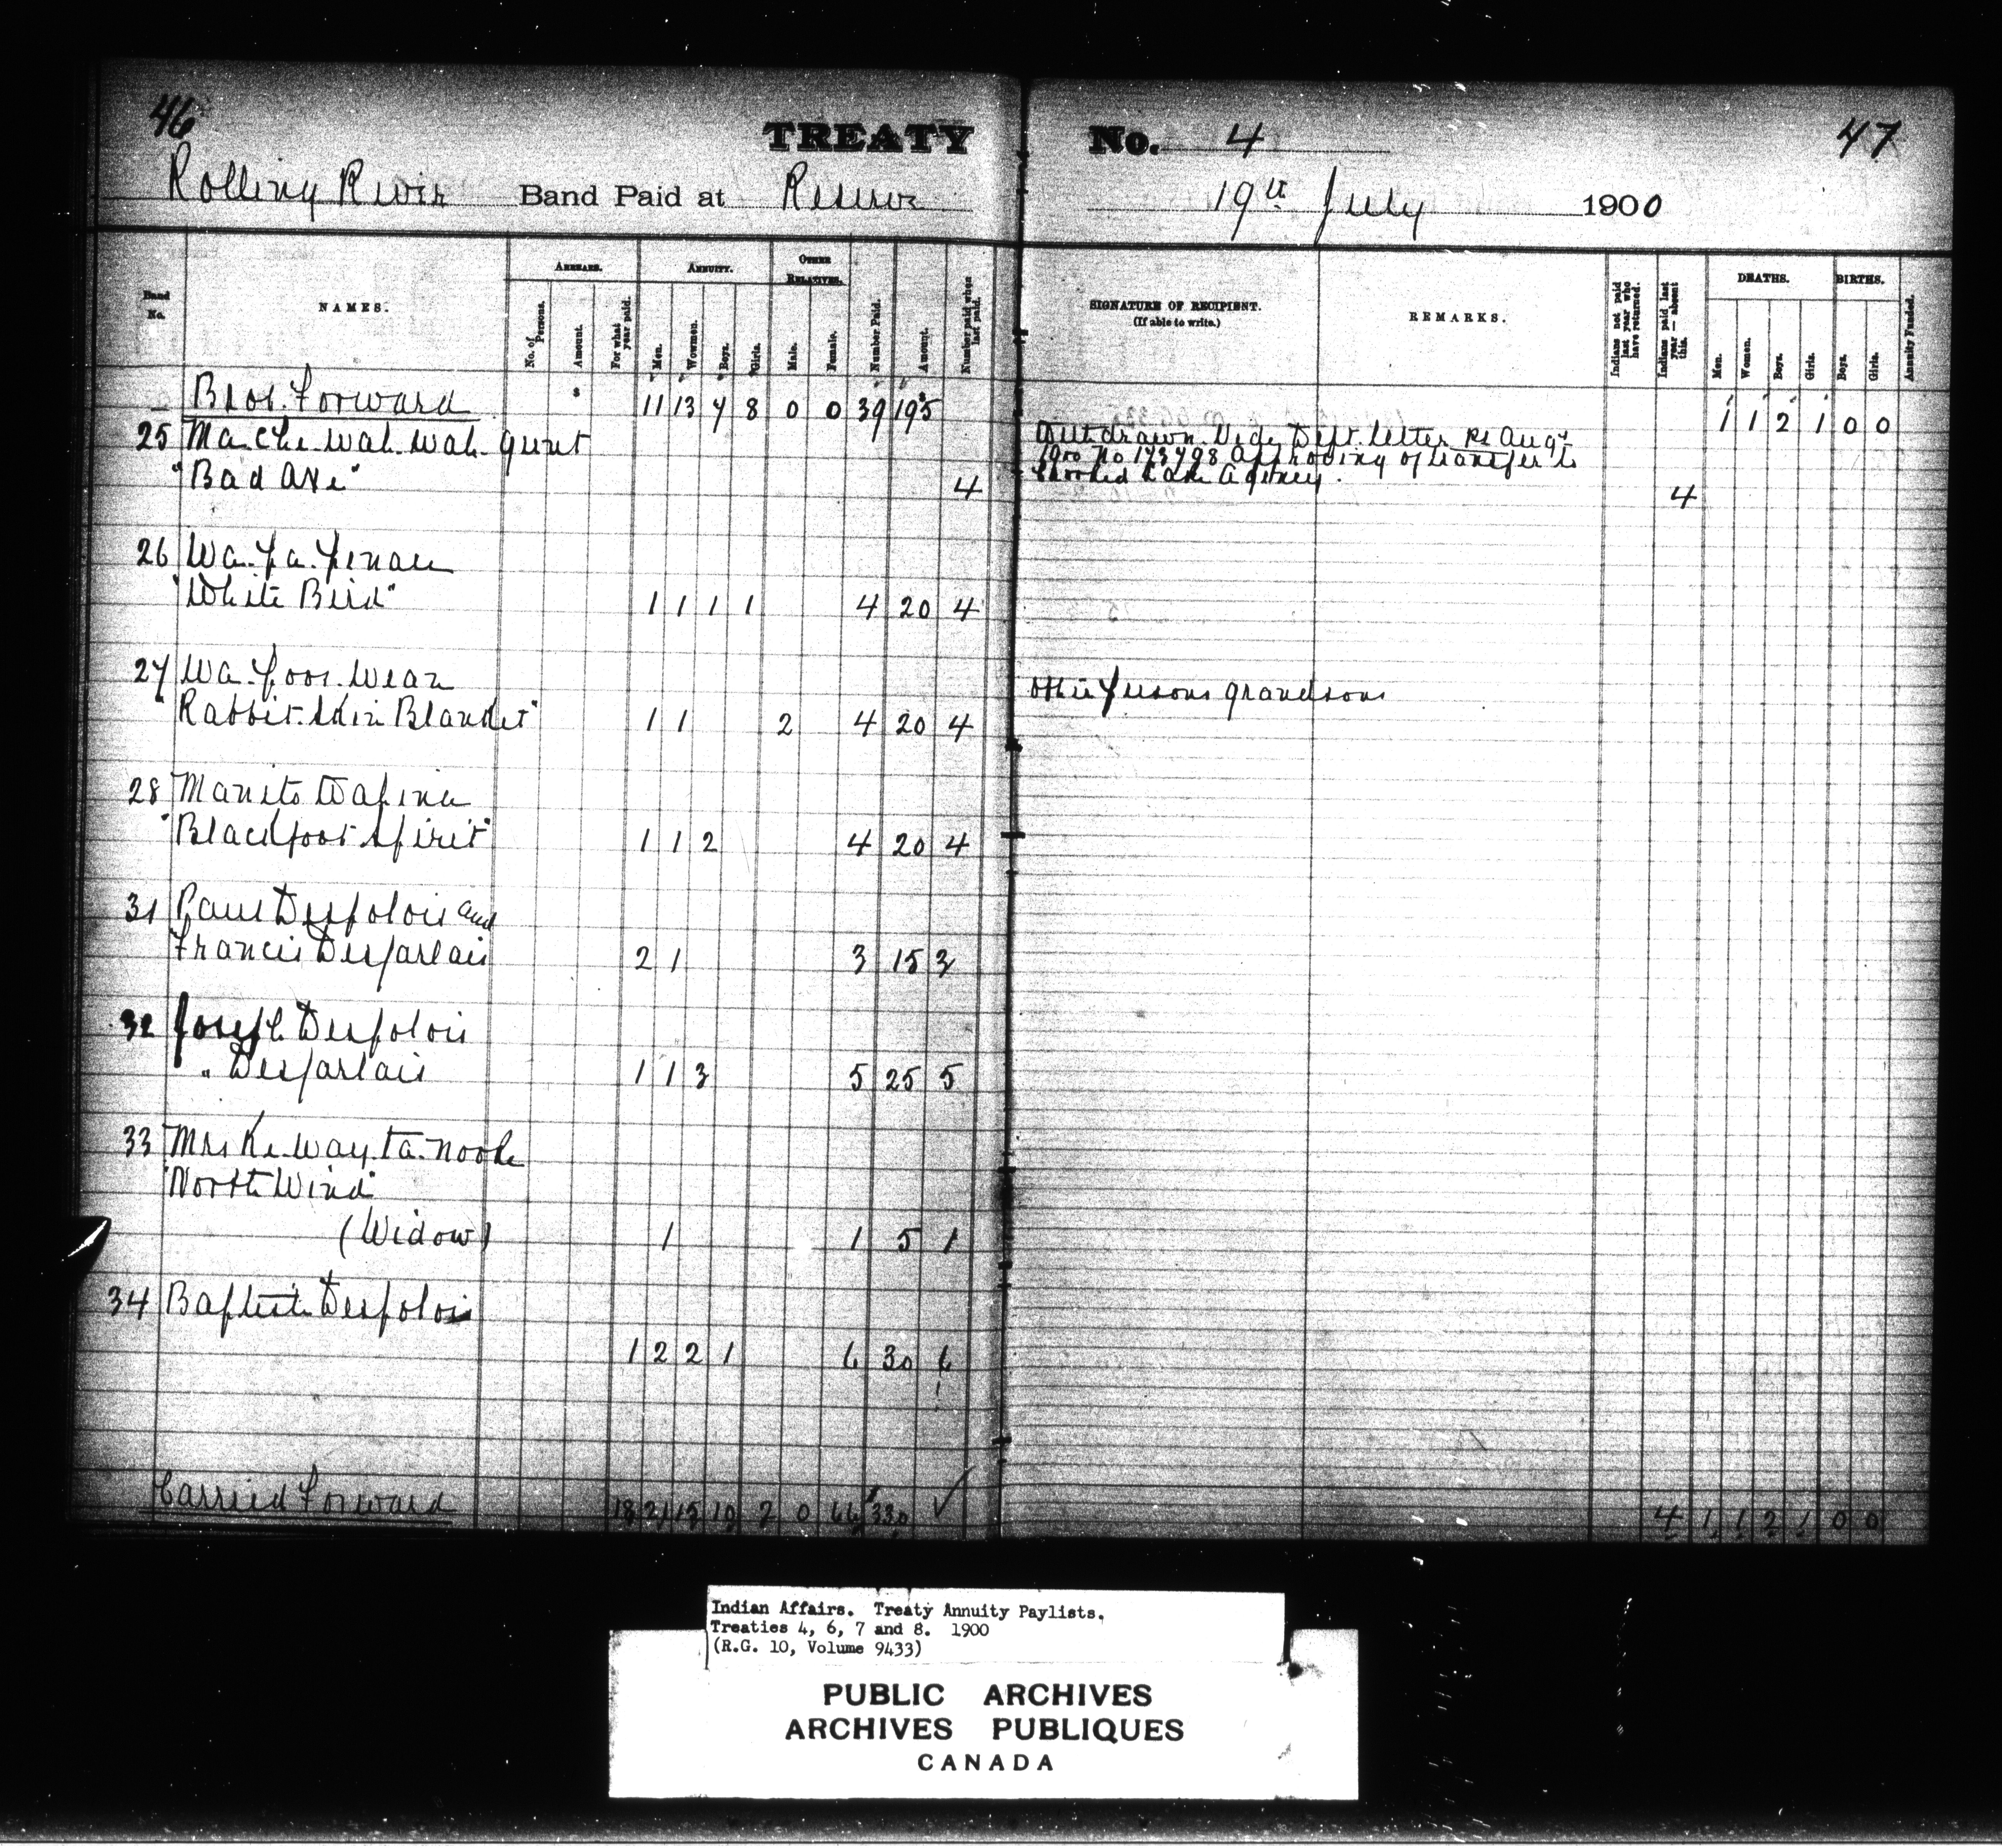 46
TREATY No. 4
47
Rolling River Band Paid at Reserve 19th July 1900
Band No.
NAMES.
ARREARS.
No. of Persons.
Amount.
For what year paid.
ANNUITY.
Men.
Wowmen.
Boys.
Girls.
OTHER RELATIVES.
Male.
Female.
Number Paid.
Amount.
Number paid when last paid.
SIGNATURE OF RECIPIENT.
(If able to write.)
REMARKS.
Indians not paid last year who have returned.
Indians paid last year — absent this.
DEATHS.
Men.
Women.
Boys.
Girls.
BIRTHS.
Boys.
Girls.
Annuity Funded.
Brot. Forward 11 13 7 8 0 0 39 195 1 1 2 1 0 0
25 Ma. Che. Wah. Wah. Withdrawn Vide Dept. letter Aug
1900 No 173798 approving of transfer to
"Bad Axe" 4 Crooked Lake Agency. 4
26 Wa. pa. penace
"White Bird" 1 1 1 1 4 20 4
27 Wa. poos. Wean other persons grandsons
"Rabbit Skin Blanket" 1 1 2 4 20 4
28 Manito Wapina
"Blackfoot Spirit" 1 1 2 4 20 4
31 Paul Despolois and
Francis Desjarlais 2 1 3 15 3
32 Joseph Despolois
" Desjarlais 1 1 3 5 25 5
33 Mrs Ke. Way. ta. Nook
"North Wind"
(Widow) 1 1 5 1
34 Baptiste Despolois
1 2 2 1 6 30 6
Carried Forward 18 21 15 10 2 0 66 330 4 1 1 2 1 0 0
Indian Affairs. Treaty Annuity Paylists.
Treaties 4, 6, 7 and 8. 1900
(R.G. 10, Volume 9433)
PUBLIC ARCHIVES
ARCHIVES PUBLIQUES
CANADA